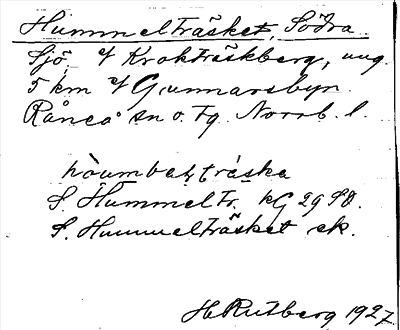 Hummelträsket, Södra.
Sjö o/ Krokträskberg, ung.
5 km o/ Gunnarsbyn.
Råneå sn o. Tg. Norrb. l.
S. Hummeltr. kG 29 SO.
S. Hummelträsket ek.
H Rutberg 1927